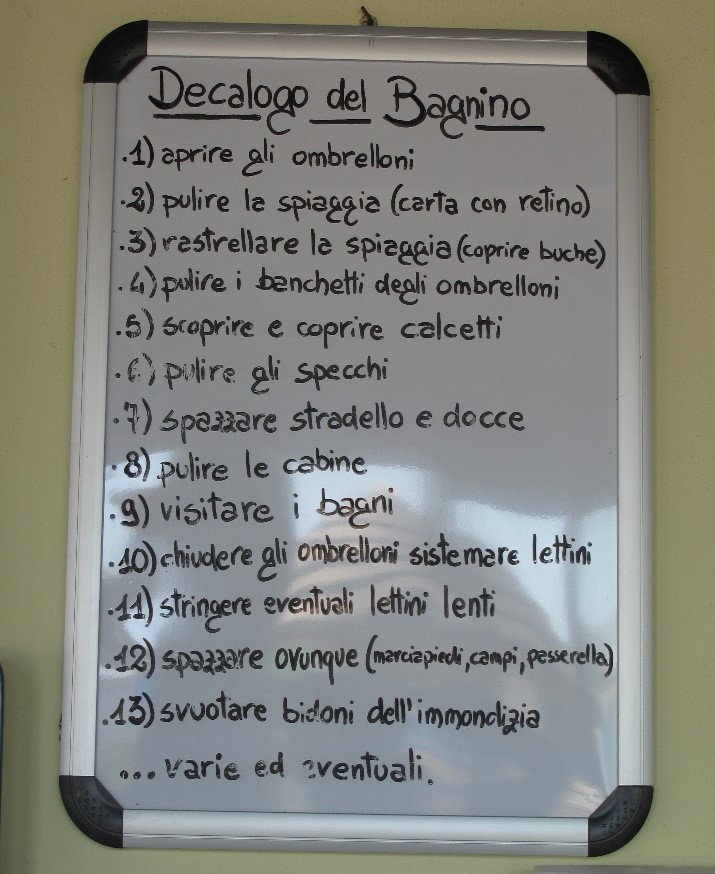 Decalogo del Bagnino
.1) aprire gli ombrelloni
.2) pulire la spiaggia (carta con retino)
.3) rastrellare la spiaggia (coprire buche)
.4) pulire i banchetti degli ombrelloni
.5) scoprire e coprire calcetti
.6) pulire gli specchi
.7) spazzare stradello e docce
.8) pulire le cabine
.9) visitare i bagni
.10) chiudere gli ombrelloni sistemare lettini
.11) stringere eventuali lettini lenti
.12) spazzare ovunque (marciapiedi, campi, passerella)
.13) svuotare bidoni dell'immondizia
... varie ed eventuali.